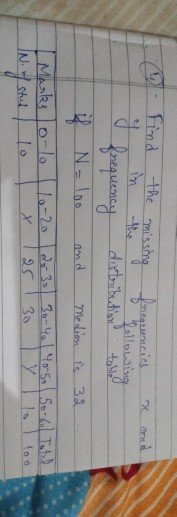 (4) - Find the missing frequencies x and
y in the following
frequency distribution table
if N = 100 and median is 32
Marks | 0-10 | 10-20 | 20-30 | 30-40 | 40-50 | 50-60 | Total
N. of stud | 10 | x | 25 | 30 | y | 10 | 100